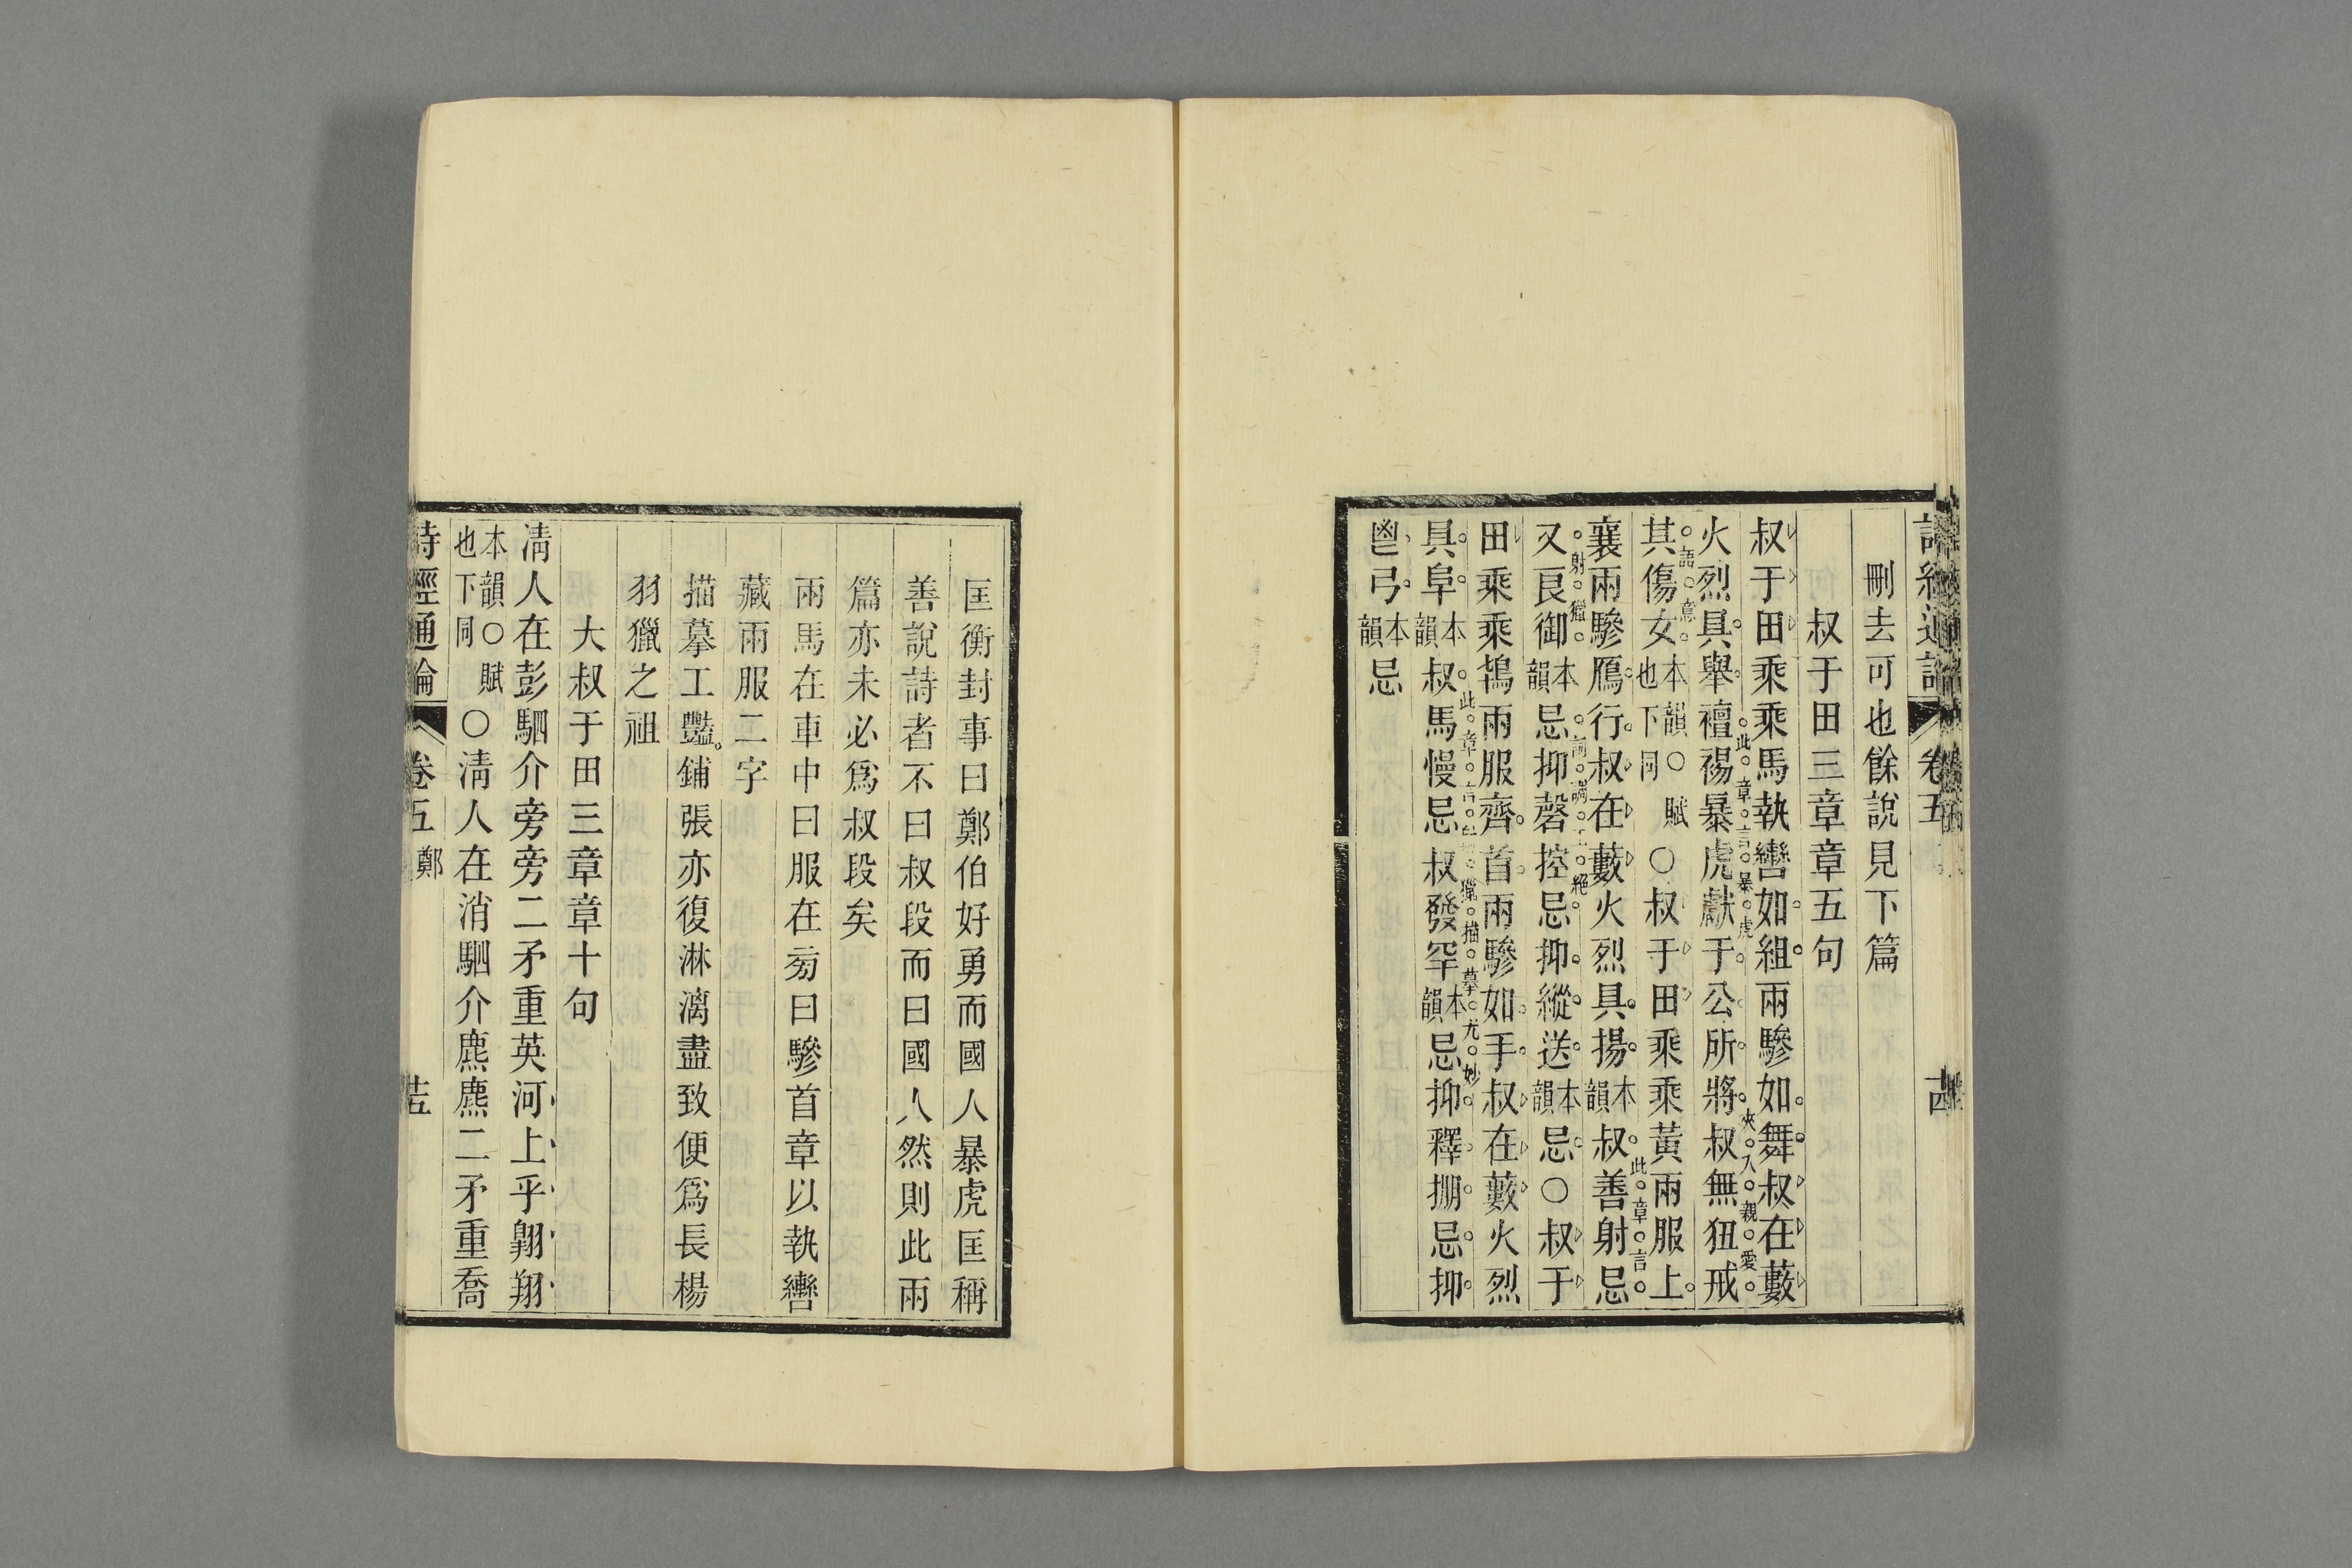 詩經通論 卷五 十四
刪去可也餘說見下篇
叔于田三章章五句
叔于田乘乘馬執轡如組兩驂如舞叔在藪
火烈具舉襢裼暴虎獻于公所將叔無狃戒
此章言暴虎 夾入親愛
其傷女本韻○賦也下同○叔于田乘乘黃兩服上
語意
襄兩驂鴈行叔在藪火烈具揚本韻叔善射忌
此章言
又良御本韻忌抑磬控忌抑縱送本韻忌○叔于
射獵
田乘乘鴇兩服齊首兩驂如手叔在藪火烈
具阜本韻叔馬慢忌叔發罕本韻忌抑釋掤忌抑
獵描摹尤妙
鬯弓本韻忌
匡衡封事曰鄭伯好勇而國人暴虎匡稱
善說詩者不曰叔段而曰國人然則此兩
篇亦未必爲叔段矣
兩馬在車中曰服在旁曰驂首章以執轡
藏兩服二字
描摹工豔鋪張亦復淋漓盡致便爲長楊
羽獵之祖
大叔于田三章章十句
清人在彭駟介旁旁二矛重英河上乎翺翔
本韻○賦也下同○清人在消駟介麃麃二矛重喬
詩經通論 卷五鄭 十五